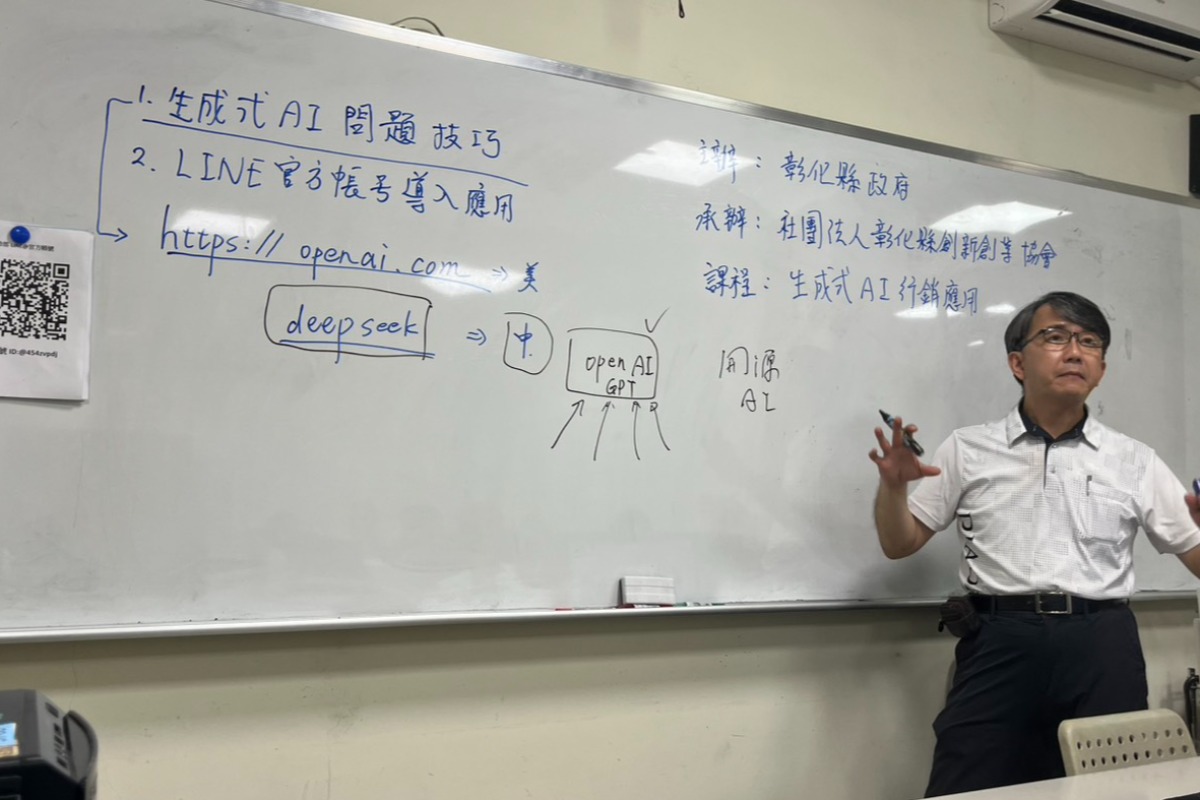 1. 生成式 AI 問題技巧
2. LINE官方帳号導入應用
https://openai.com ⇒ 美
deepseek ⇒ 中.
open AI
GPT
主辦：彰化縣政府
承辦：社團法人彰化縣創新創業協會
課程：生成式 AI 行銷應用
開源
AI
號 ID:@454zvpdj